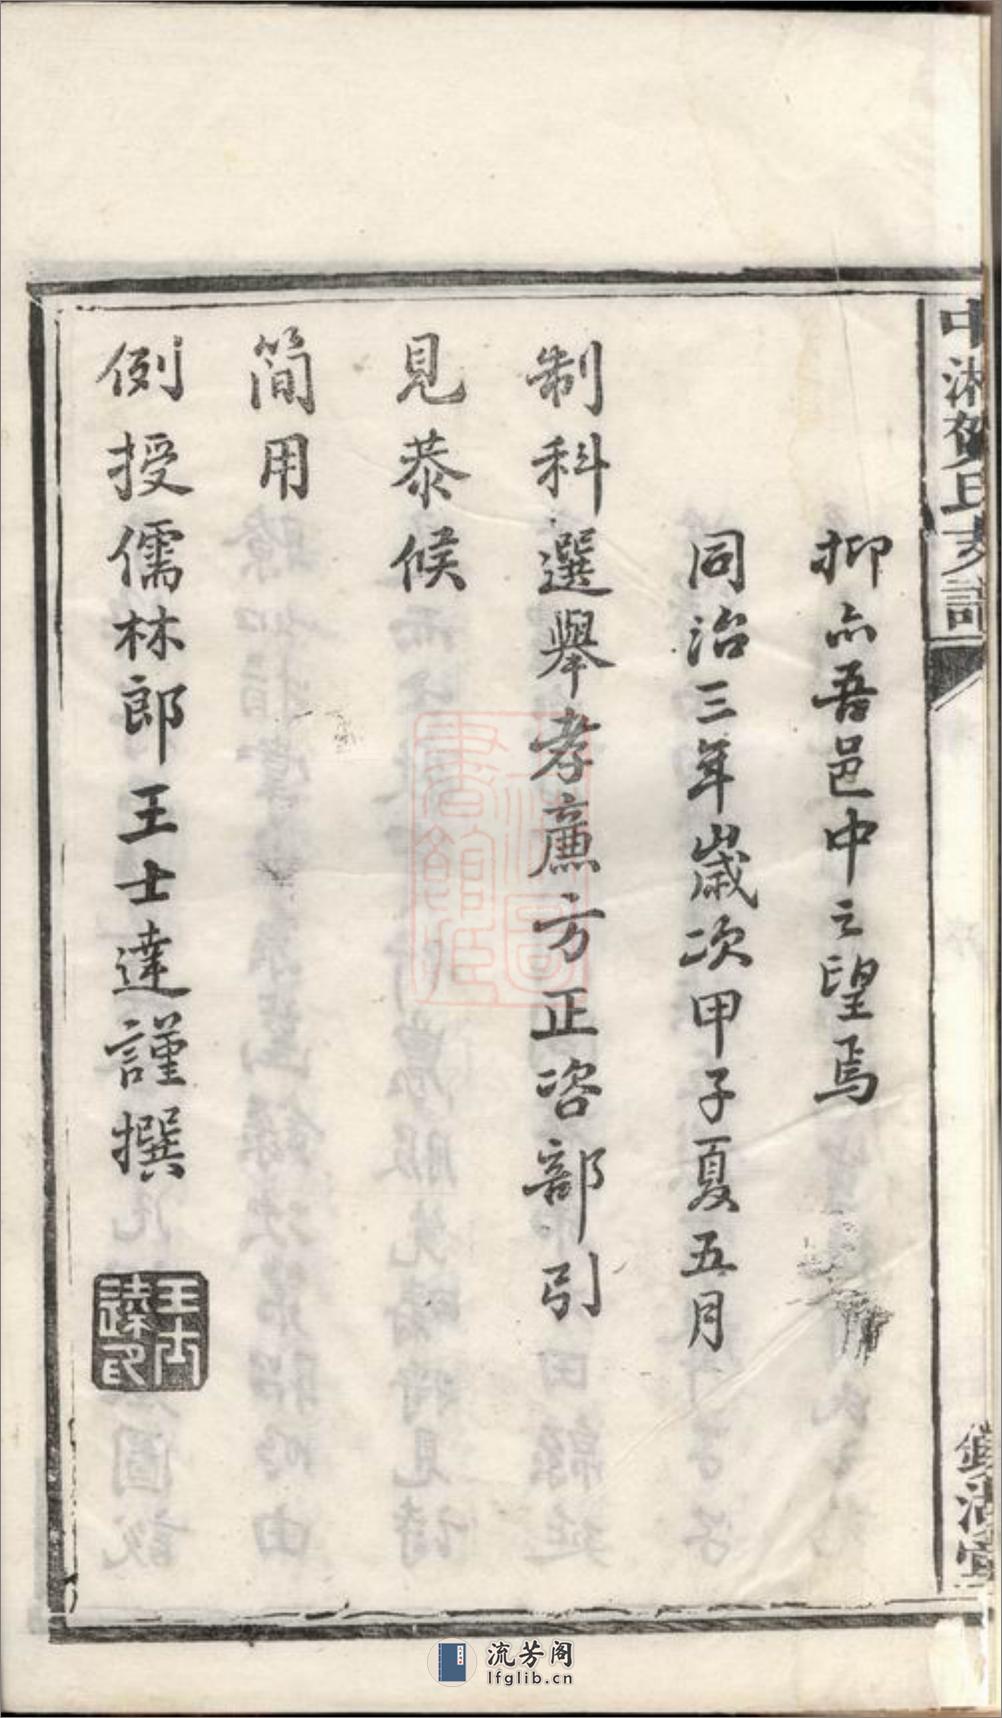 抑亦吾邑中之望焉
同治三年歲次甲子夏五月
制科選舉孝廉方正咨部引
見恭候
簡用
例授儒林郎王士達謹撰
王士達印
中湘賀氏支譜
流芳阁
lfglib.cn